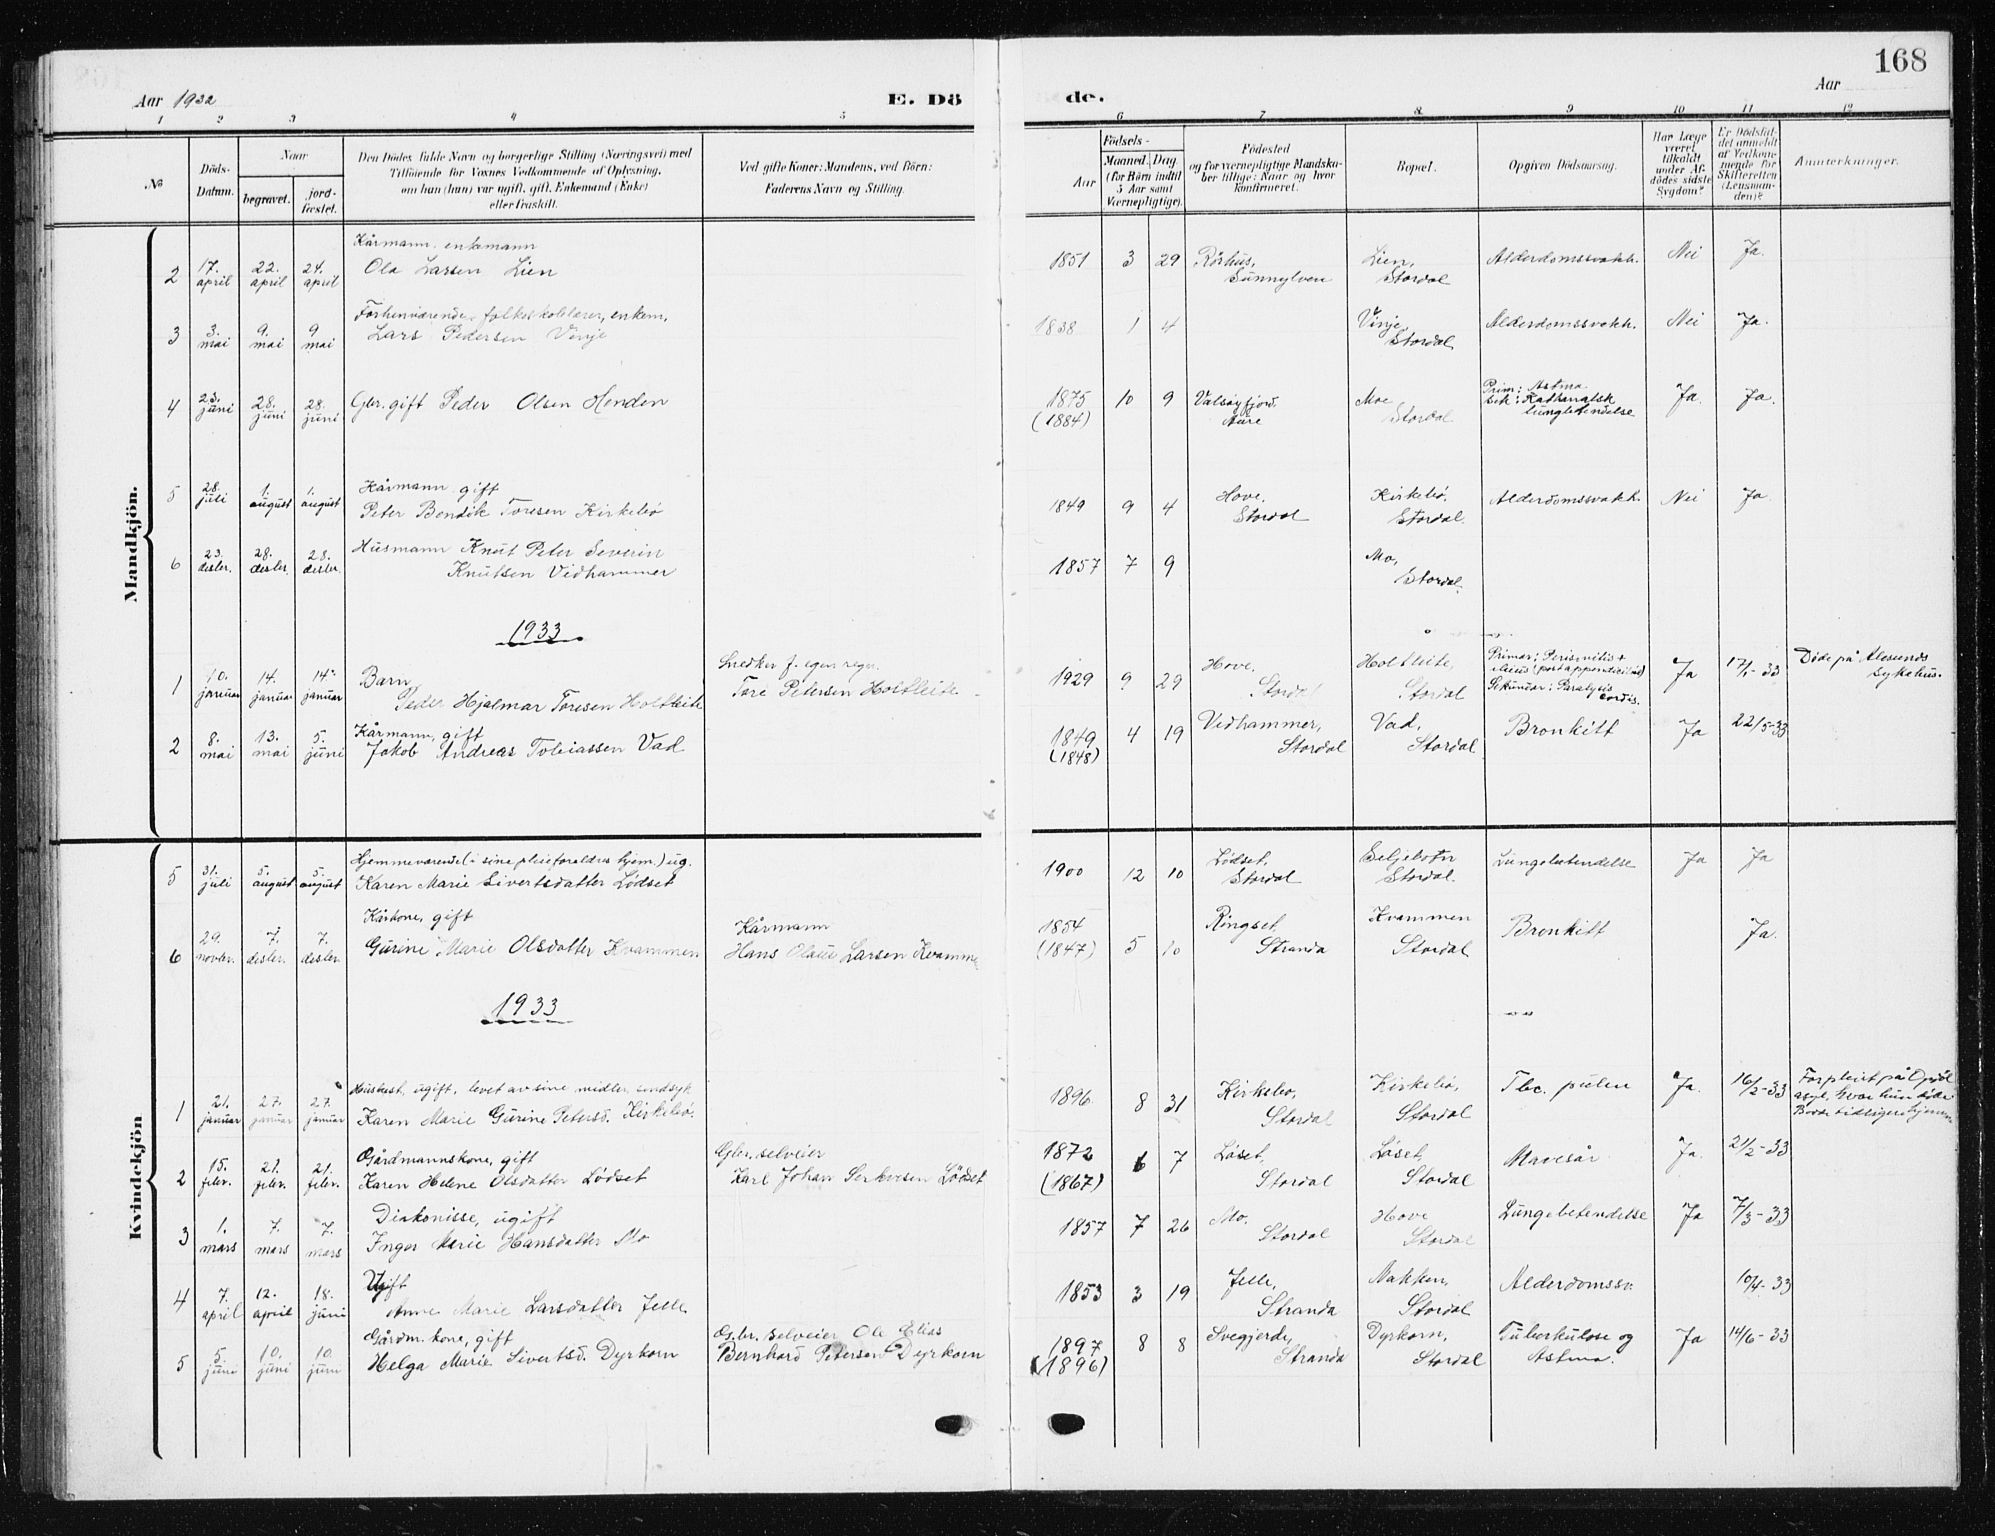 168
Aar 1932
E. Dö
de.
Aar
1 2 3 4 5 6 7 8 9 10 11 12
No
Döds-
Datum.
Naar
begravet.
jord-
fæstet.
Den Dödes fulde Navn og borgerlige Stilling (Næringsvei) med
Tilföiende for Voxnes Vedkommende af Oplysning,
om han (hun) var ugift, gift, Enkemand (Enke)
eller fraskilt.
Ved gifte Koner: Mandens, ved Börn:
Faderens Navn og Stilling.
Födsels-
Aar
Maaned. Dag.
(for Börn indtil
5 Aar samt
Værnepligtige).
Födested
og for værnepligtige Mandska-
ber tillige: Naar og hvor
konfirmeret.
Bopæl.
Opgiven Dödsaarsag.
Har Læge
været
tilkaldt
under Af-
dödes sidste
Sygdom?
Er Dödsfal-
det anmeldt
af Vedkom-
mende for
Skifteretten
(Lensman-
den)?
Anmærkninger.
Mandkjön.
Kårmann, enkemann
2 17. april 22. april 24. april Ola Larsen Lien 1851 3 29 Rörhus, Sunnylven Lien, Stordal Alderdomssvakh. Nei Ja.
Forhenværende folkeskolelærer, enkem.
3 3. mai 9. mai 9 mai Lars Pedersen Vinje 1838 1 4 Vinje, Stordal Alderdomssvakh. Nei Ja.
4 23. juni 28. juni 28. juni Gbr. gift Peder Olsen Henden 1875 (1884) 10 9 Valsøyfjord, Aure Moe Stordal Prim: Astma sek: Katharralsk lungebetendelse Ja. Ja.
Kårmann gift
5 28. juli 1. august 1. august Peter Bendik Toresen Kirkebø 1849 9 4 Hove, Stordal Kirkebö, Stordal. Alderdomssvakh. Nei Ja.
6 23. desbr. 28. desbr. 28. desbr. Husmann Knut Peter Severin
Knutsen Vidhammer 1857 7 9 Mo, Stordal.
1933
1 10. januar 14. januar 14. januar Barn
Peder Hjalmar Toresen Holtleite Snedker f. egen regn. Tore Petersen Holtleite 1929 9 29 Hove, Stordal Holtleite, Stordal Ja 17/1-33 Døde på Ålesunds sykehus.
Sekundær: Paralysis cordis.
Kårmann, gift
2 8. mai 13. mai 5. juni Jakob Andreas Tobiassen Vad 1849 (1848) 4 19 Vidhammer, Stordal Vad, Stordal Bronkitt Ja 22/5-33
Kvindekjön
Hjemmeværende (i sine pleieforeldres hjem.) ug.
5 31. juli 5. august 5. august Karen Marie Sivertsdatter Lödset 1900 12 10 Lödset, Stordal Seljebotn Stordal. Lungebetendelse Ja Ja
Kårkone, gift
6 29. novbr. 7. desbr. 7. desbr. Gurine Marie Olsdatter Kvammen Kårmann Hans Olaus Larsen Kvamme 1854 (1847) 5 10 Ringset, Stranda Kvammen Stordal Bronkitt Ja.
1933
ugift, levet av sine midler, sindsyk
1 21. januar 27. januar 27. januar Karen Marie Gurine Petersd. Kirkebö. 1896 8 31 Kirkebø, Stordal Kirkebö, Stordal Tbc. pulm Ja. 16/2-33 Forpleiet på Opdöl asyl, hvor hun døde
Gårdmannskone, gift
2 15. febr. 21. febr. 21. febr. Karen Helene Olsdatter Lödset Gbr. selveier Karl Johan Lödset 1872 (1867) 6 7 Löset, Stordal Löset, Stordal Mavesår Ja. 21/2-33
Diakonisse, ugift
3 1. mars 7. mars 7. mars Inger Marie Hansdatter Mo 1857 7 26 Mo, Stordal Hove Stordal Lungebetendelse Ja 7/3-33
Ugift
4 7. april 12. april 18. juni Anne Marie Larsdatter Jelle 1853 3 19 Jelle, Stranda Nakken, Stordal Alderdomssv. 10/4-33
Gårdm. kone, gift
5 5 juni 10. juni 10. juni Helga Marie Sivertsd. Dyrkorn Gbr. selveier Ole Elias Bernhard Petersen Dyrkorn 1897 (1896) 8 8 Svegjerde, Stranda Dyrkorn, Stordal Tuberkulose og Astma. Ja 14/6-33